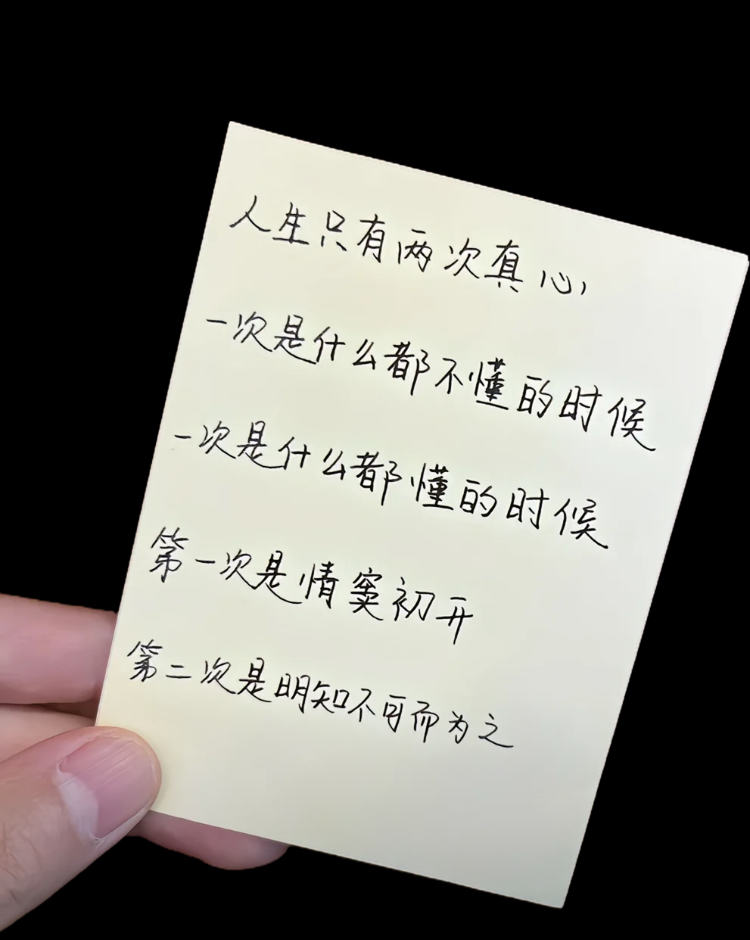 人生只有两次真心
一次是什么都不懂的时候
一次是什么都懂的时候
第一次是情窦初开
第二次是明知不可而为之